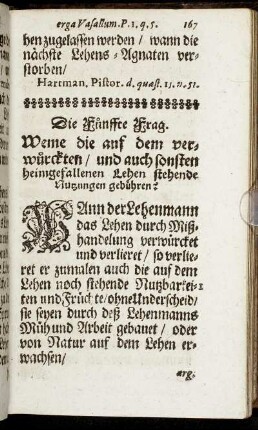 erga Vasallum. P. 1. q. 5. 167
ben zugelassen werden / wann die
nächste Lehens-Agnaten ver-
storben /
Hartman. Pistor. d. quæst. 11. n. 51.
Die Fünffte Frag.
Weme die auf dem ver-
würckten / und auch sonsten
heimgefallenen Lehen stehende
Nutzungen gebühren?
WAnn der Lehenmann
das Lehen durch Miß-
handelung verwürcket
und verlieret / so verlie-
ret er zumalen auch die auf dem
Lehen noch stehende Nutzbarkei-
ten und Früchte / ohne Unterscheid /
sie seyen durch deß Lehenmanns
Müh und Arbeit gebauet / oder
von Natur auf dem Lehen er-
wachsen /
arg.